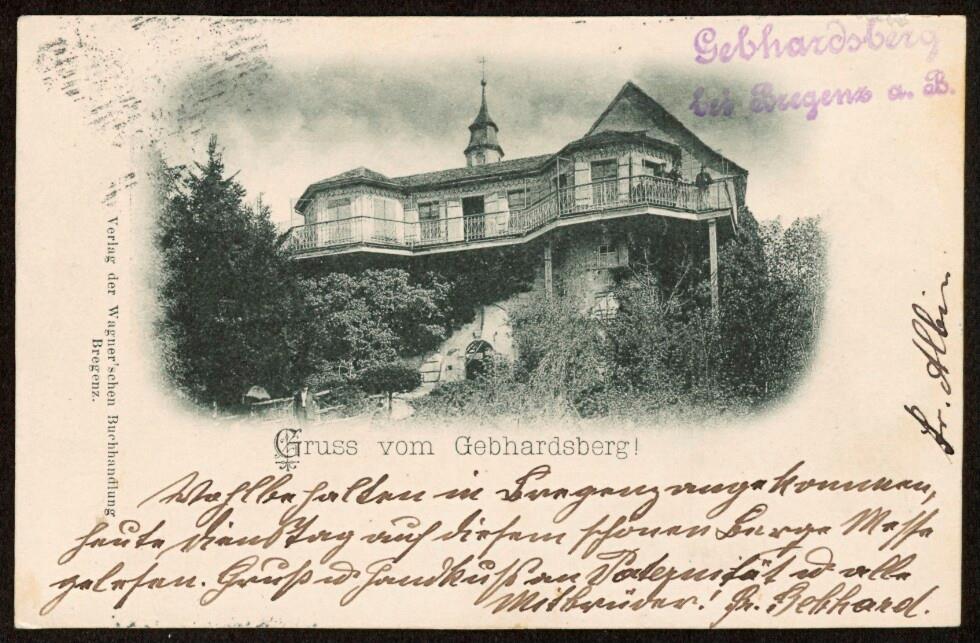 Gebhardsberg
bei Bregenz a. B.
Verlag der Wagner'schen Buchhandlung
Bregenz.
Gruss vom Gebhardsberg!
Fr. Albin
Wohlbehalten in Bregenz angekommen,
heute Dienstag auf diesem schönen Berge Messe
gelesen. Gruß u. Handkuß an Paternität u. alle
Mitbrüder! Fr. Gebhard.